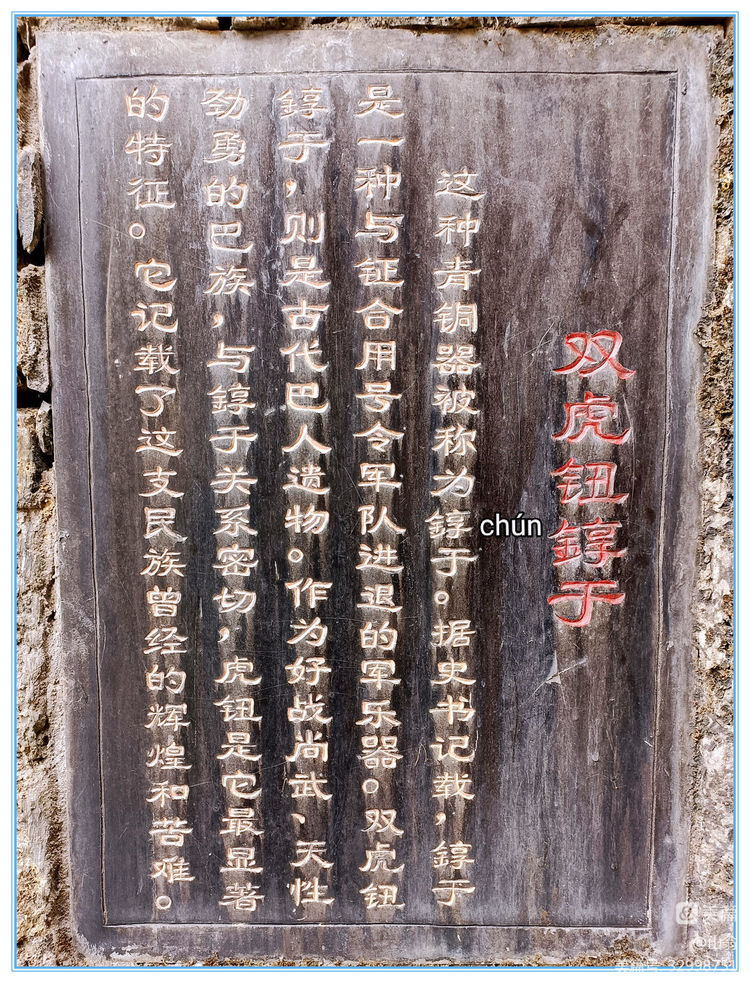 双虎钮錞于
这种青铜器被称为錞于。据史书记载，錞于
chún
是一种与钲合用号令军队进退的军乐器。双虎钮
錞于，则是古代巴人遗物。作为好战尚武、天性
劲勇的巴族，与錞于关系密切，虎钮是它最显著
的特征。它记载了这支民族曾经的辉煌和苦难。